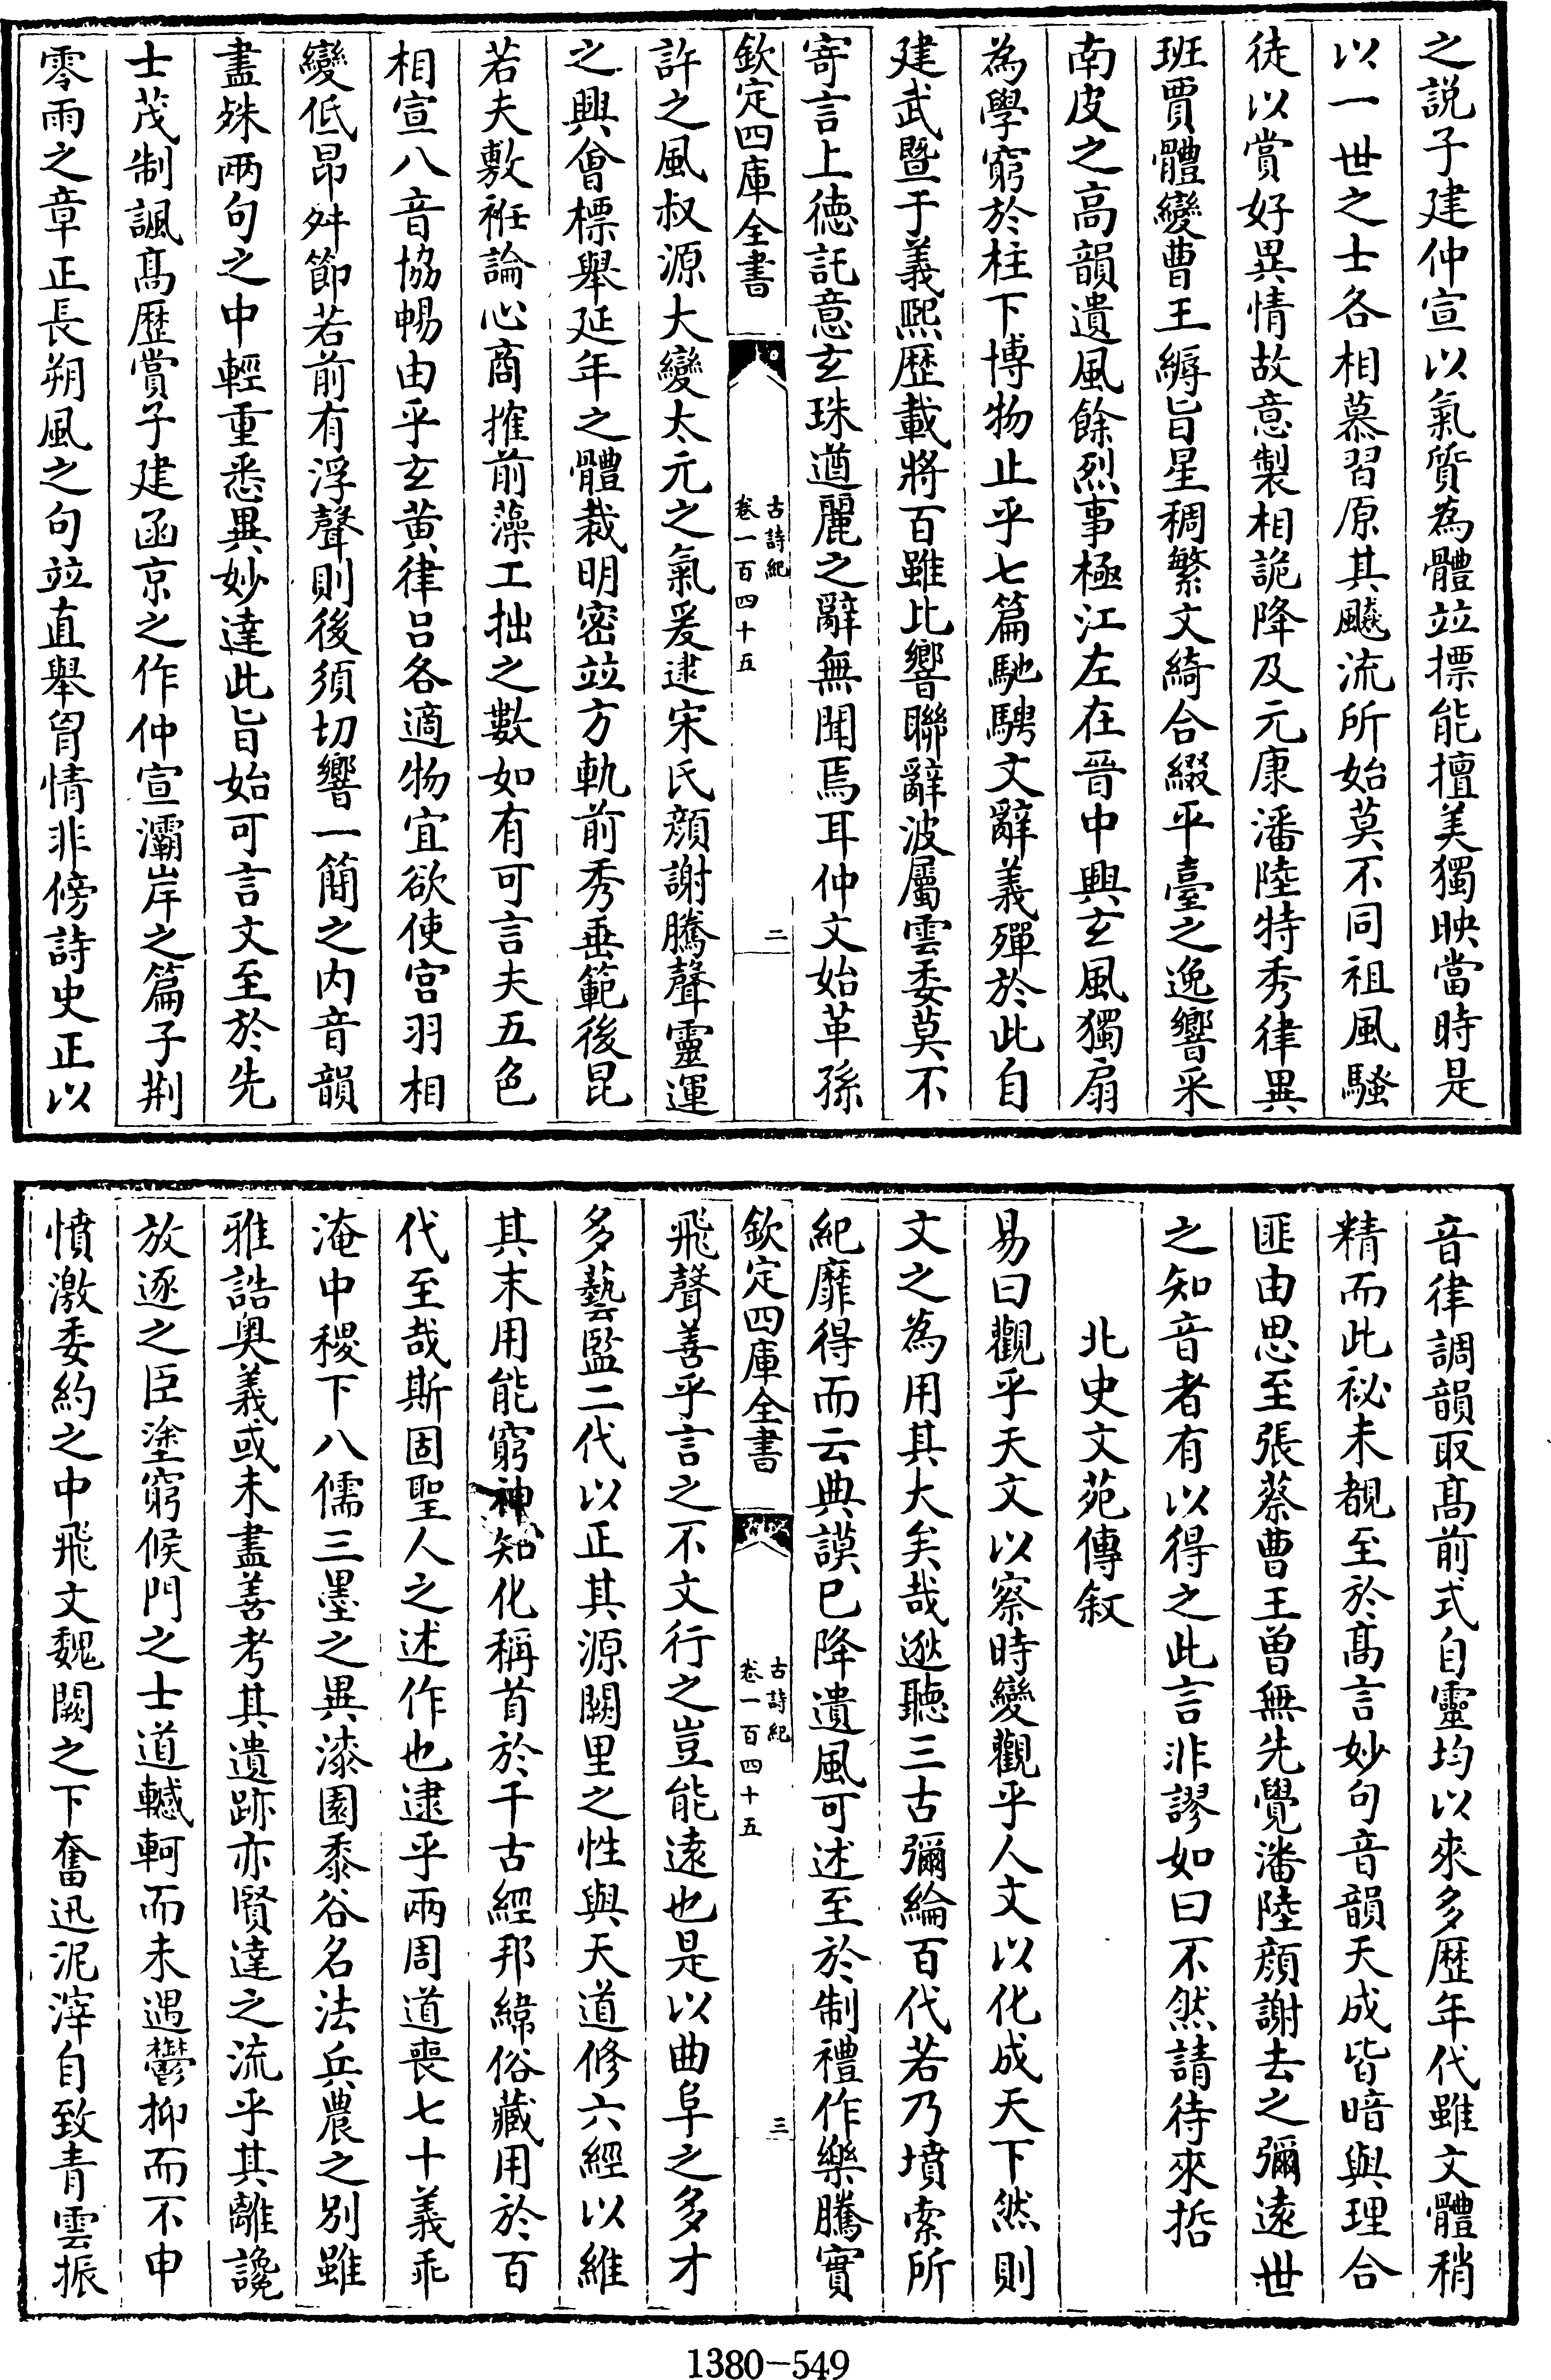 之説子建仲宣以氣質為體竝摽能擅美獨映當時是
以一世之士各相慕習原其飇流所始莫不同祖風騷
徒以賞好異情故意製相詭降及元康潘陸特秀律異
班賈體變曹王縟旨星稠繁文綺合綴平臺之逸響采
南皮之高韻遺風餘烈事極江左在晉中興玄風獨扇
為學窮於柱下博物止乎七篇馳騁文辭義殫於此自
建武暨于義熙歴載將百雖比響聯辭波屬雲委莫不
寄言上徳託意玄珠遒麗之辭無聞焉耳仲文始革孫
欽定四庫全書
古詩紀
卷一百四十五
二
許之風叔源大變太元之氣爰逮宋氏顔謝騰聲靈運
之興㑹標舉延年之體裁明密竝方軌前秀垂範後昆
若夫敷袵論心商搉前藻工拙之數如有可言夫五色
相宣八音協暢由乎玄黄律吕各適物宜欲使宫羽相
變低昂舛節若前有浮聲則後須切響一簡之内音韻
盡殊兩句之中輕重悉異妙達此旨始可言文至於先
士茂制諷髙歴賞子建函京之作仲宣灞岸之篇子荆
零雨之章正長朔風之句竝直舉胷情非傍詩史正以
音律調韻取髙前式自靈均以來多歴年代雖文體稍
精而此祕未覩至於髙言妙句音韻天成皆暗與理合
匪由思至張蔡曹王曽無先覺潘陸顔謝去之彌逺世
之知音者有以得之此言非謬如曰不然請待來哲
北史文苑傳叙
易曰觀乎天文以察時變觀乎人文以化成天下然則
文之為用其大矣哉逖聽三古彌綸百代若乃墳索所
紀靡得而云典謨已降遺風可述至於制禮作樂騰實
欽定四庫全書
古詩紀
卷一百四十五
三
飛聲善乎言之不文行之豈能逺也是以曲阜之多才
多藝監二代以正其源闕里之性與天道修六經以維
其末用能窮神知化稱首於千古經邦緯俗藏用於百
代至哉斯固聖人之述作也逮乎兩周道喪七十義乖
淹中稷下八儒三墨之異漆園黍谷名法兵農之别雖
雅誥奥義或未盡善考其遺跡亦賢達之流乎其離讒
放逐之臣塗窮候門之士道轗軻而未遇鬱抑而不申
憤激委約之中飛文魏闕之下奮迅泥滓自致青雲振
1380-549